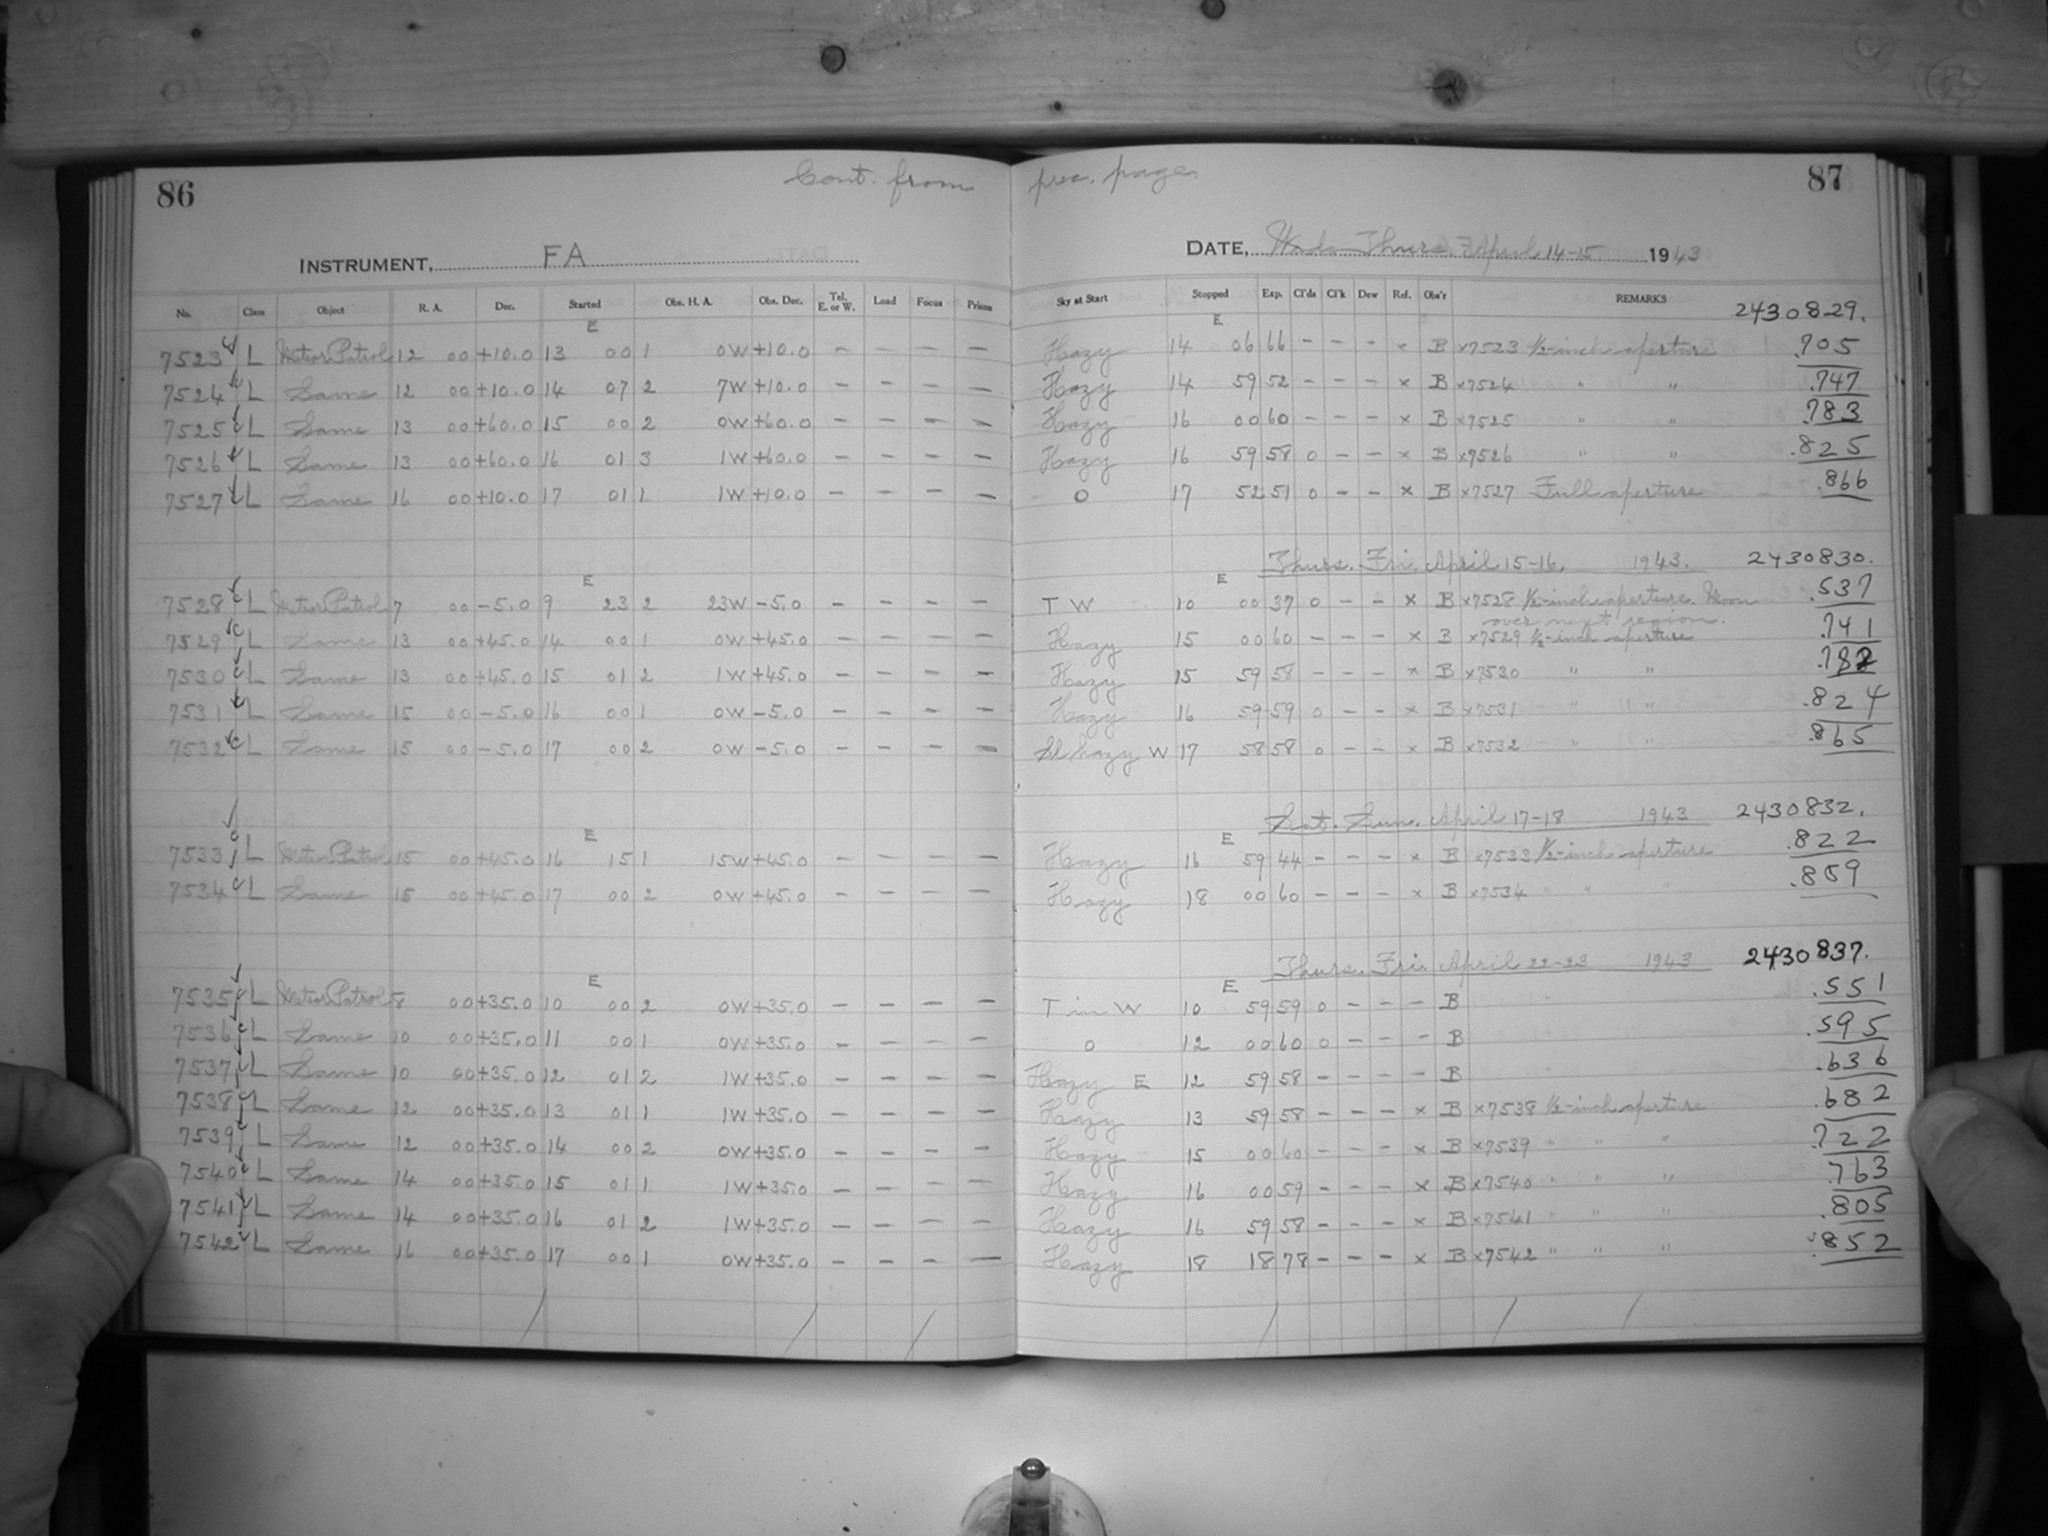 86 Cont. from prec. page 87
INSTRUMENT, FA DATE, Wed. Thurs. April 14-15 1943
No. Class Object R. A. Dec. Started Obs. H. A. Obs. Dec. Tel. E. or W. Load Focus Prisms Sky at Start Stopped Exp. Cl'ds Cl'k Dew Ref. Obs'r REMARKS 2430829.
E E
7523 L Meteor Patrol 12 00 +10.0 13 00 1 0W +10.0 – – – – Hazy 14 06 66 – – – × B ×7523 1/2-inch aperture .705
7524 L Same 12 00 +10.0 14 07 2 7W +10.0 – – – – Hazy 14 59 52 – – – × B ×7524 " " .747
7525 L Same 13 00 +60.0 15 00 2 0W +60.0 – – – – Hazy 16 00 60 – – – × B ×7525 " " .783
7526 L Same 13 00 +60.0 16 01 3 1W +60.0 – – – – Hazy 16 59 58 0 – – × B ×7526 " " .825
7527 L Same 16 00 +10.0 17 01 1 1W +10.0 – – – – 0 17 52 51 0 – – × B ×7527 Full aperture .866
Thurs. Fri. April 15-16, 1943. 2430830.
E E
7528 L Meteor Patrol 7 00 -5.0 9 23 2 23W -5.0 – – – – T W 10 00 37 0 – – × B ×7528 1/2-inch aperture. Moon .537
over next region.
7529 L Same 13 00 +45.0 14 00 1 0W +45.0 – – – – Hazy 15 00 60 – – – × B ×7529 1/2-inch aperture .741
7530 L Same 13 00 +45.0 15 01 2 1W +45.0 – – – – Hazy 15 59 58 – – – × B ×7530 " " .782
7531 L Same 15 00 -5.0 16 00 1 0W -5.0 – – – – Hazy 16 59 59 0 – – × B ×7531 " " .824
7532 L Same 15 00 -5.0 17 00 2 0W -5.0 – – – – Sl hazy W 17 58 58 0 – – × B ×7532 " " .865
Sat. Sun. April 17-18 1943 2430832.
E E
7533 L Meteor Patrol 15 00 +45.0 16 15 1 15W +45.0 – – – – Hazy 16 59 44 – – – × B ×7533 1/2-inch aperture .822
7534 L Same 15 00 +45.0 17 00 2 0W +45.0 – – – – Hazy 18 00 60 – – – × B ×7534 " " " .859
Thurs. Fri. April 22-23 1943 2430837.
E E
7535 L Meteor Patrol 8 00 +35.0 10 00 2 0W +35.0 – – – – T in W 10 59 59 0 – – – B .551
7536 L Same 10 00 +35.0 11 00 1 0W +35.0 – – – – 0 12 00 60 0 – – – B .595
7537 L Same 10 00 +35.0 12 01 2 1W +35.0 – – – – Hazy E 12 59 58 – – – – B .636
7538 L Same 12 00 +35.0 13 01 1 1W +35.0 – – – – Hazy 13 59 58 – – – × B ×7538 1/2-inch aperture .682
7539 L Same 12 00 +35.0 14 00 2 0W +35.0 – – – – Hazy 15 00 60 – – – × B ×7539 " " " .722
7540 L Same 14 00 +35.0 15 01 1 1W +35.0 – – – – Hazy 16 00 59 – – – × B ×7540 " " " .763
7541 L Same 14 00 +35.0 16 01 2 1W +35.0 – – – – Hazy 16 59 58 – – – × B ×7541 " " " .805
7542 L Same 16 00 +35.0 17 00 1 0W +35.0 – – – – Hazy 18 18 78 – – – × B ×7542 " " " .852